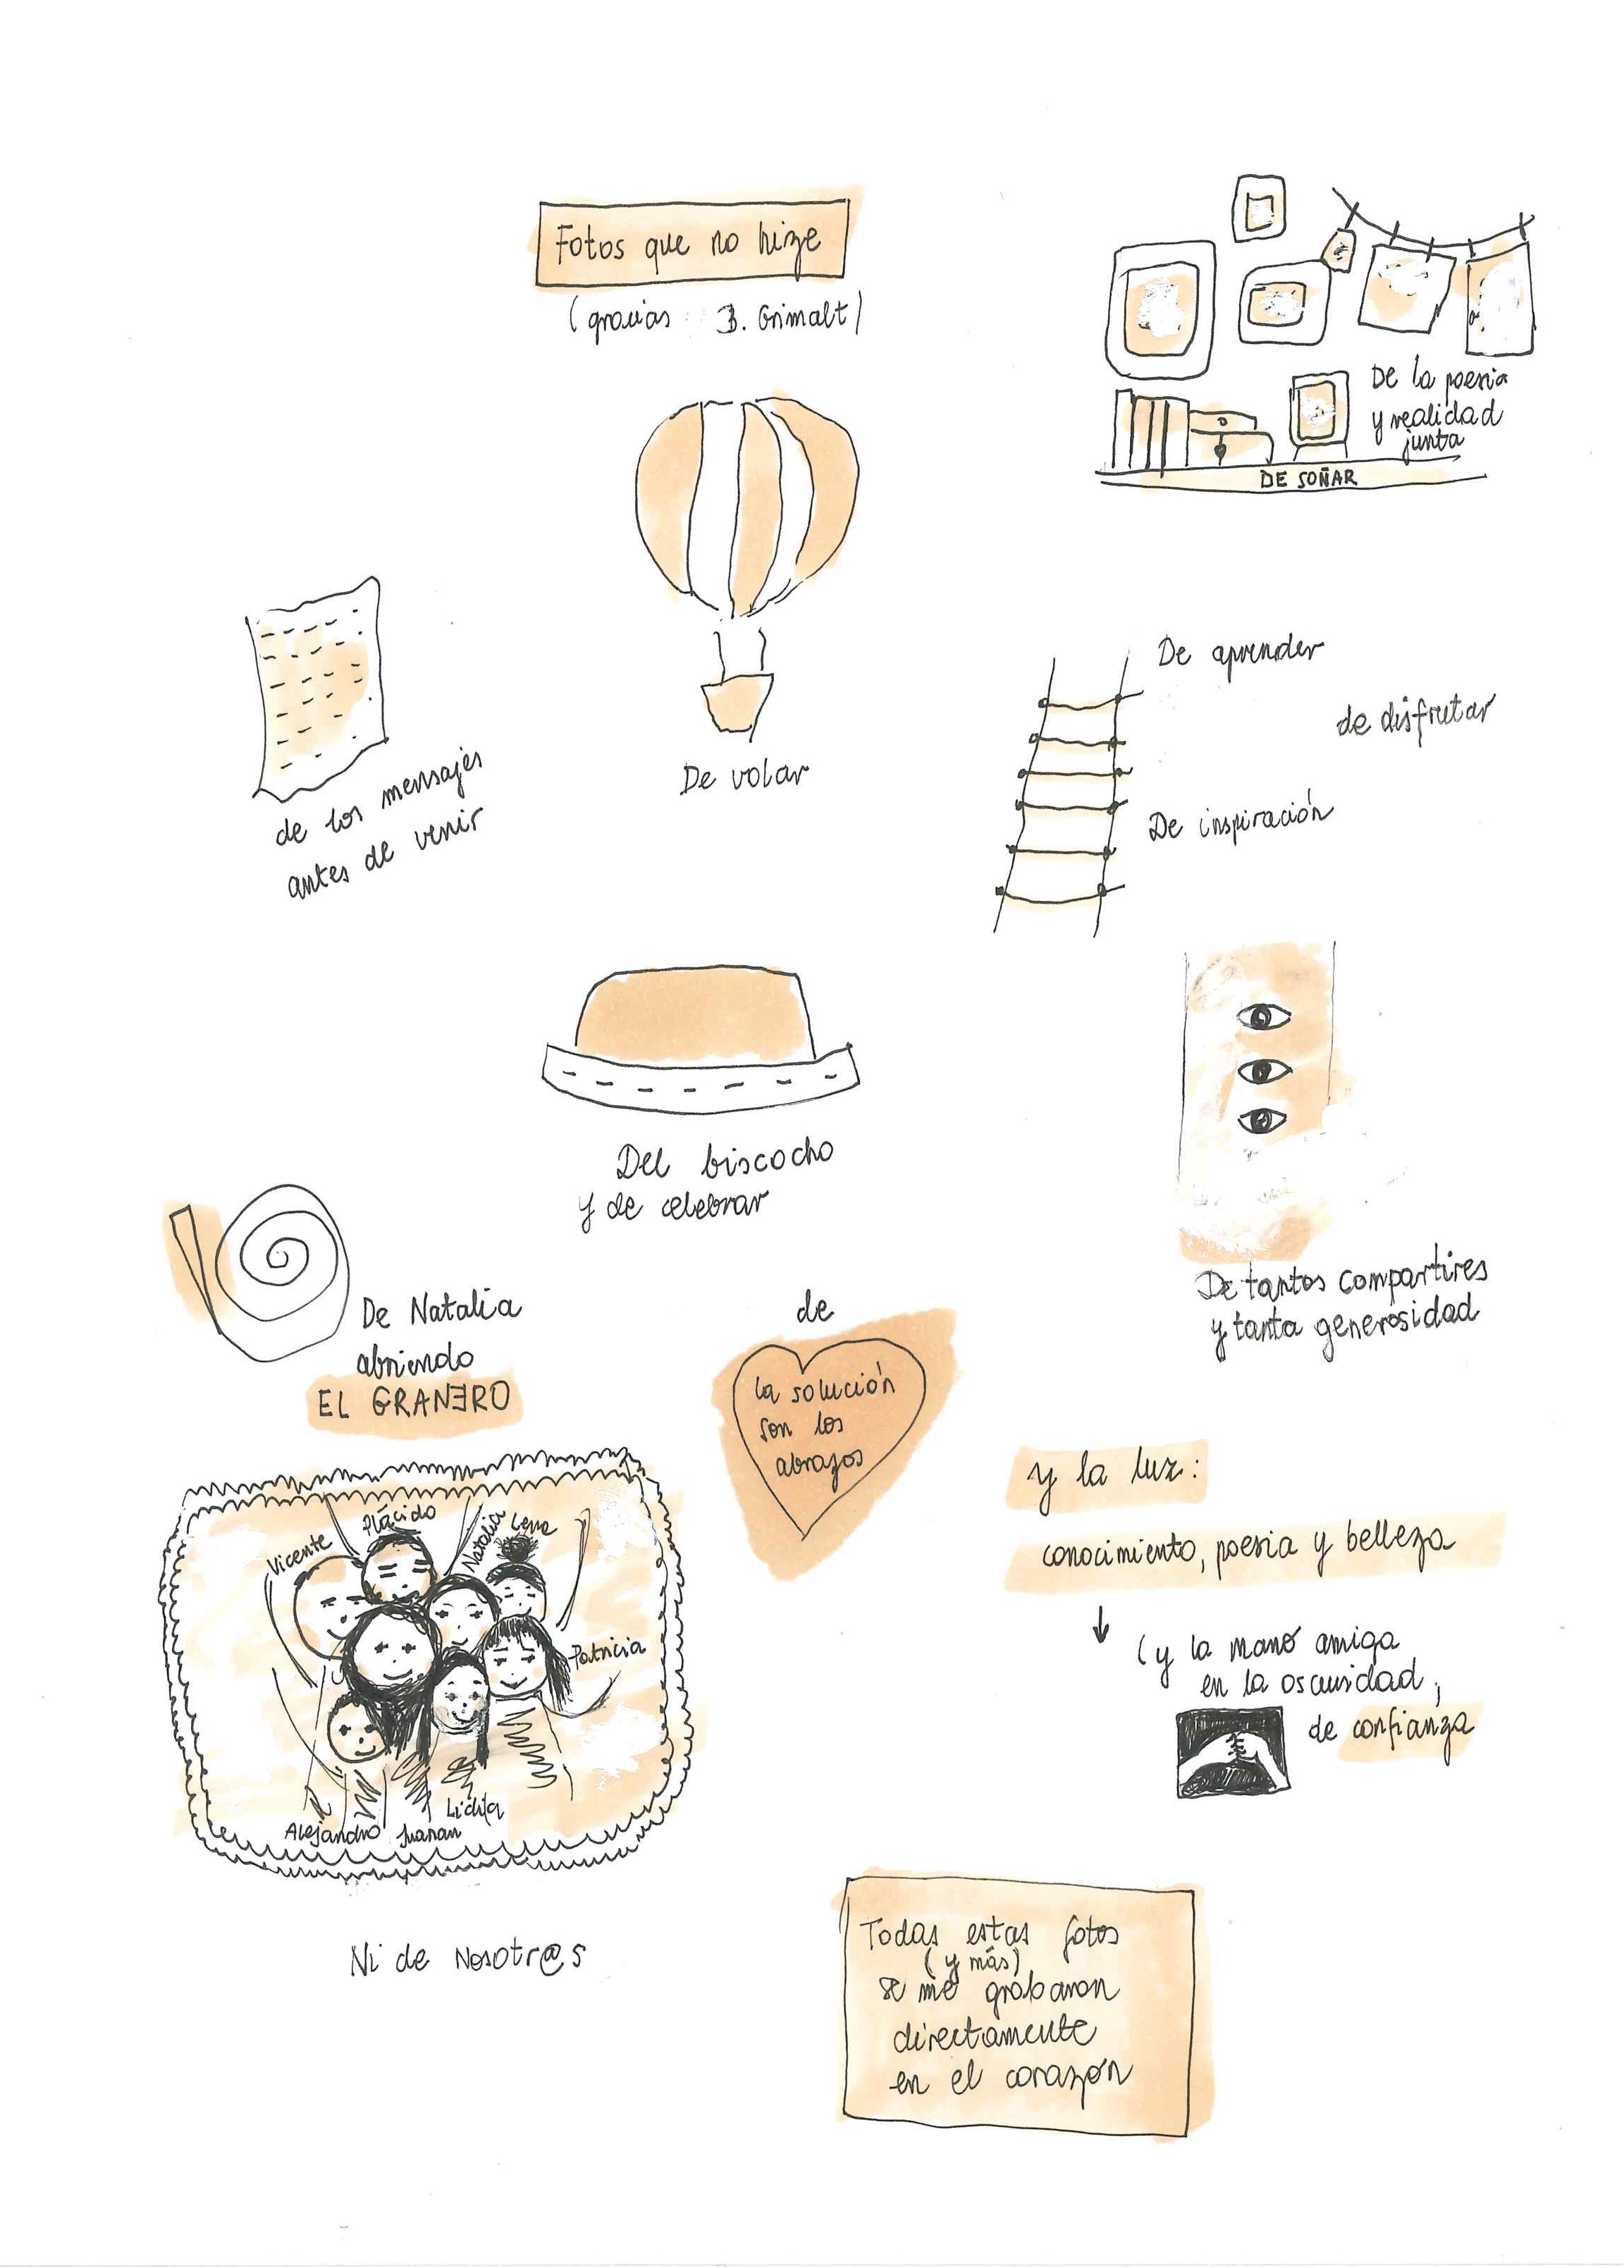 Fotos que no hize
(gracias B. Grimalt)
De la poesia
y realidad
junta
DE SOÑAR
De volar
de los mensajes
antes de venir
De aprender
de disfrutar
De inspiración
Del biscocho
y de celebrar
De tantos compartires
y tanta generosidad
De Natalia
abriendo
EL GRANERO
de
la solución
son los
abrazos
y la luz:
conocimiento, poesia y belleza
(y la mano amiga
en la oscuridad,
de confianza
Vicente
Plácido
Natalia
Lena
Patricia
Alejandro
Juanan
Lidita
Ni de Nosotr@s
Todas estas fotos
(y más)
se me grabaron
directamente
en el corazón